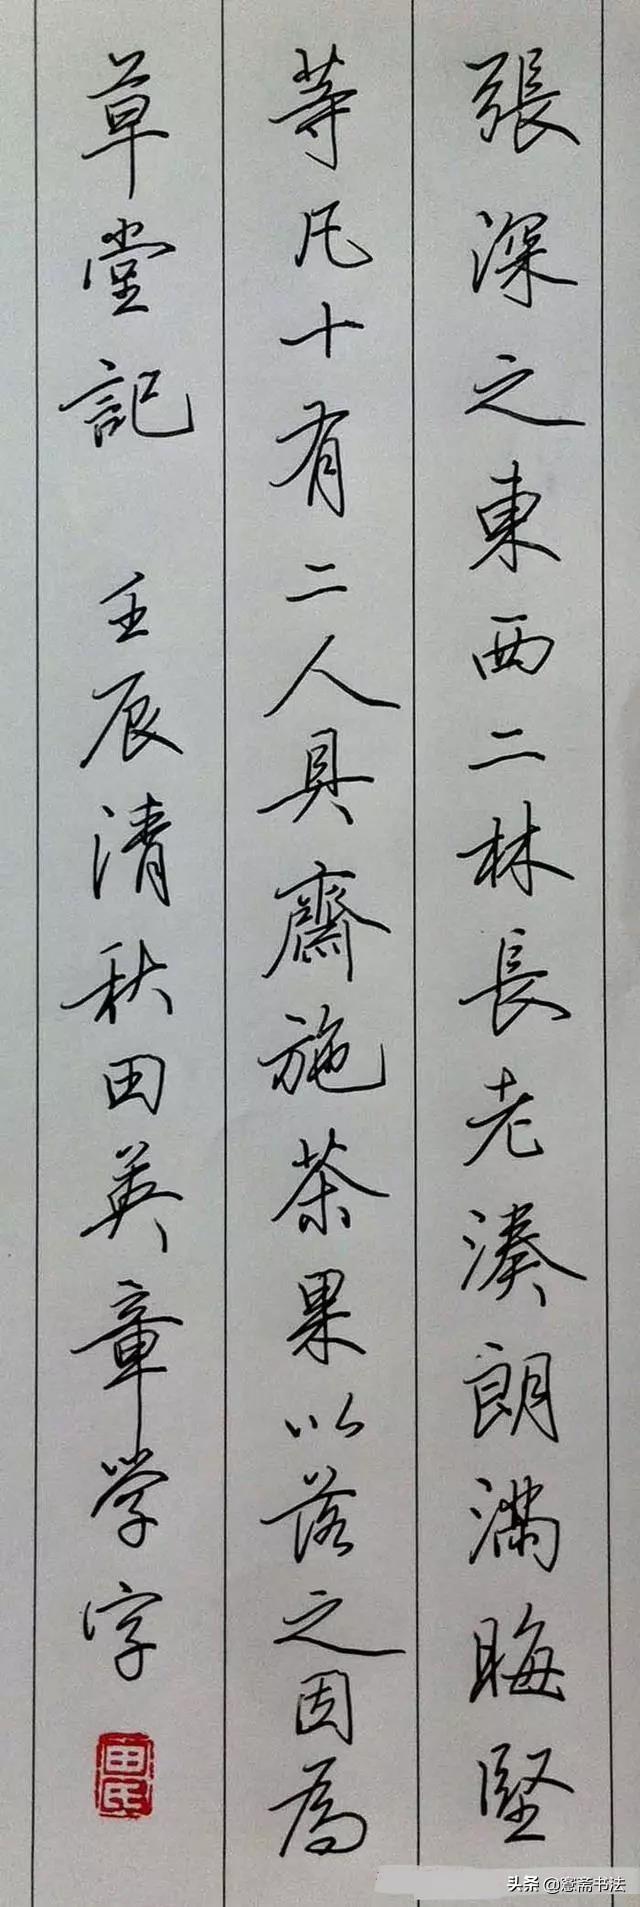 張深之東西二林長老湊朗滿晦堅
等凡十有二人具齋施茶果以落之因為
草堂記 壬辰清秋田英章學字
田氏
头条@蹇斋书法